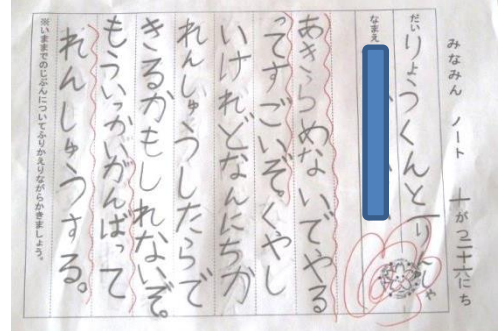 みなみん ノート 一がつ二十六にち
だい りょうくんと一りんしゃ
なまえ
あきらめないでやる
ってすごいぞくやし
いけれどなんにちか
れんしゅうしたらで
きるかもしれないぞ。
もういっかいがんばって
れんしゅうする。
※いままでのじぶんについてふりかえりながらかきましょう。